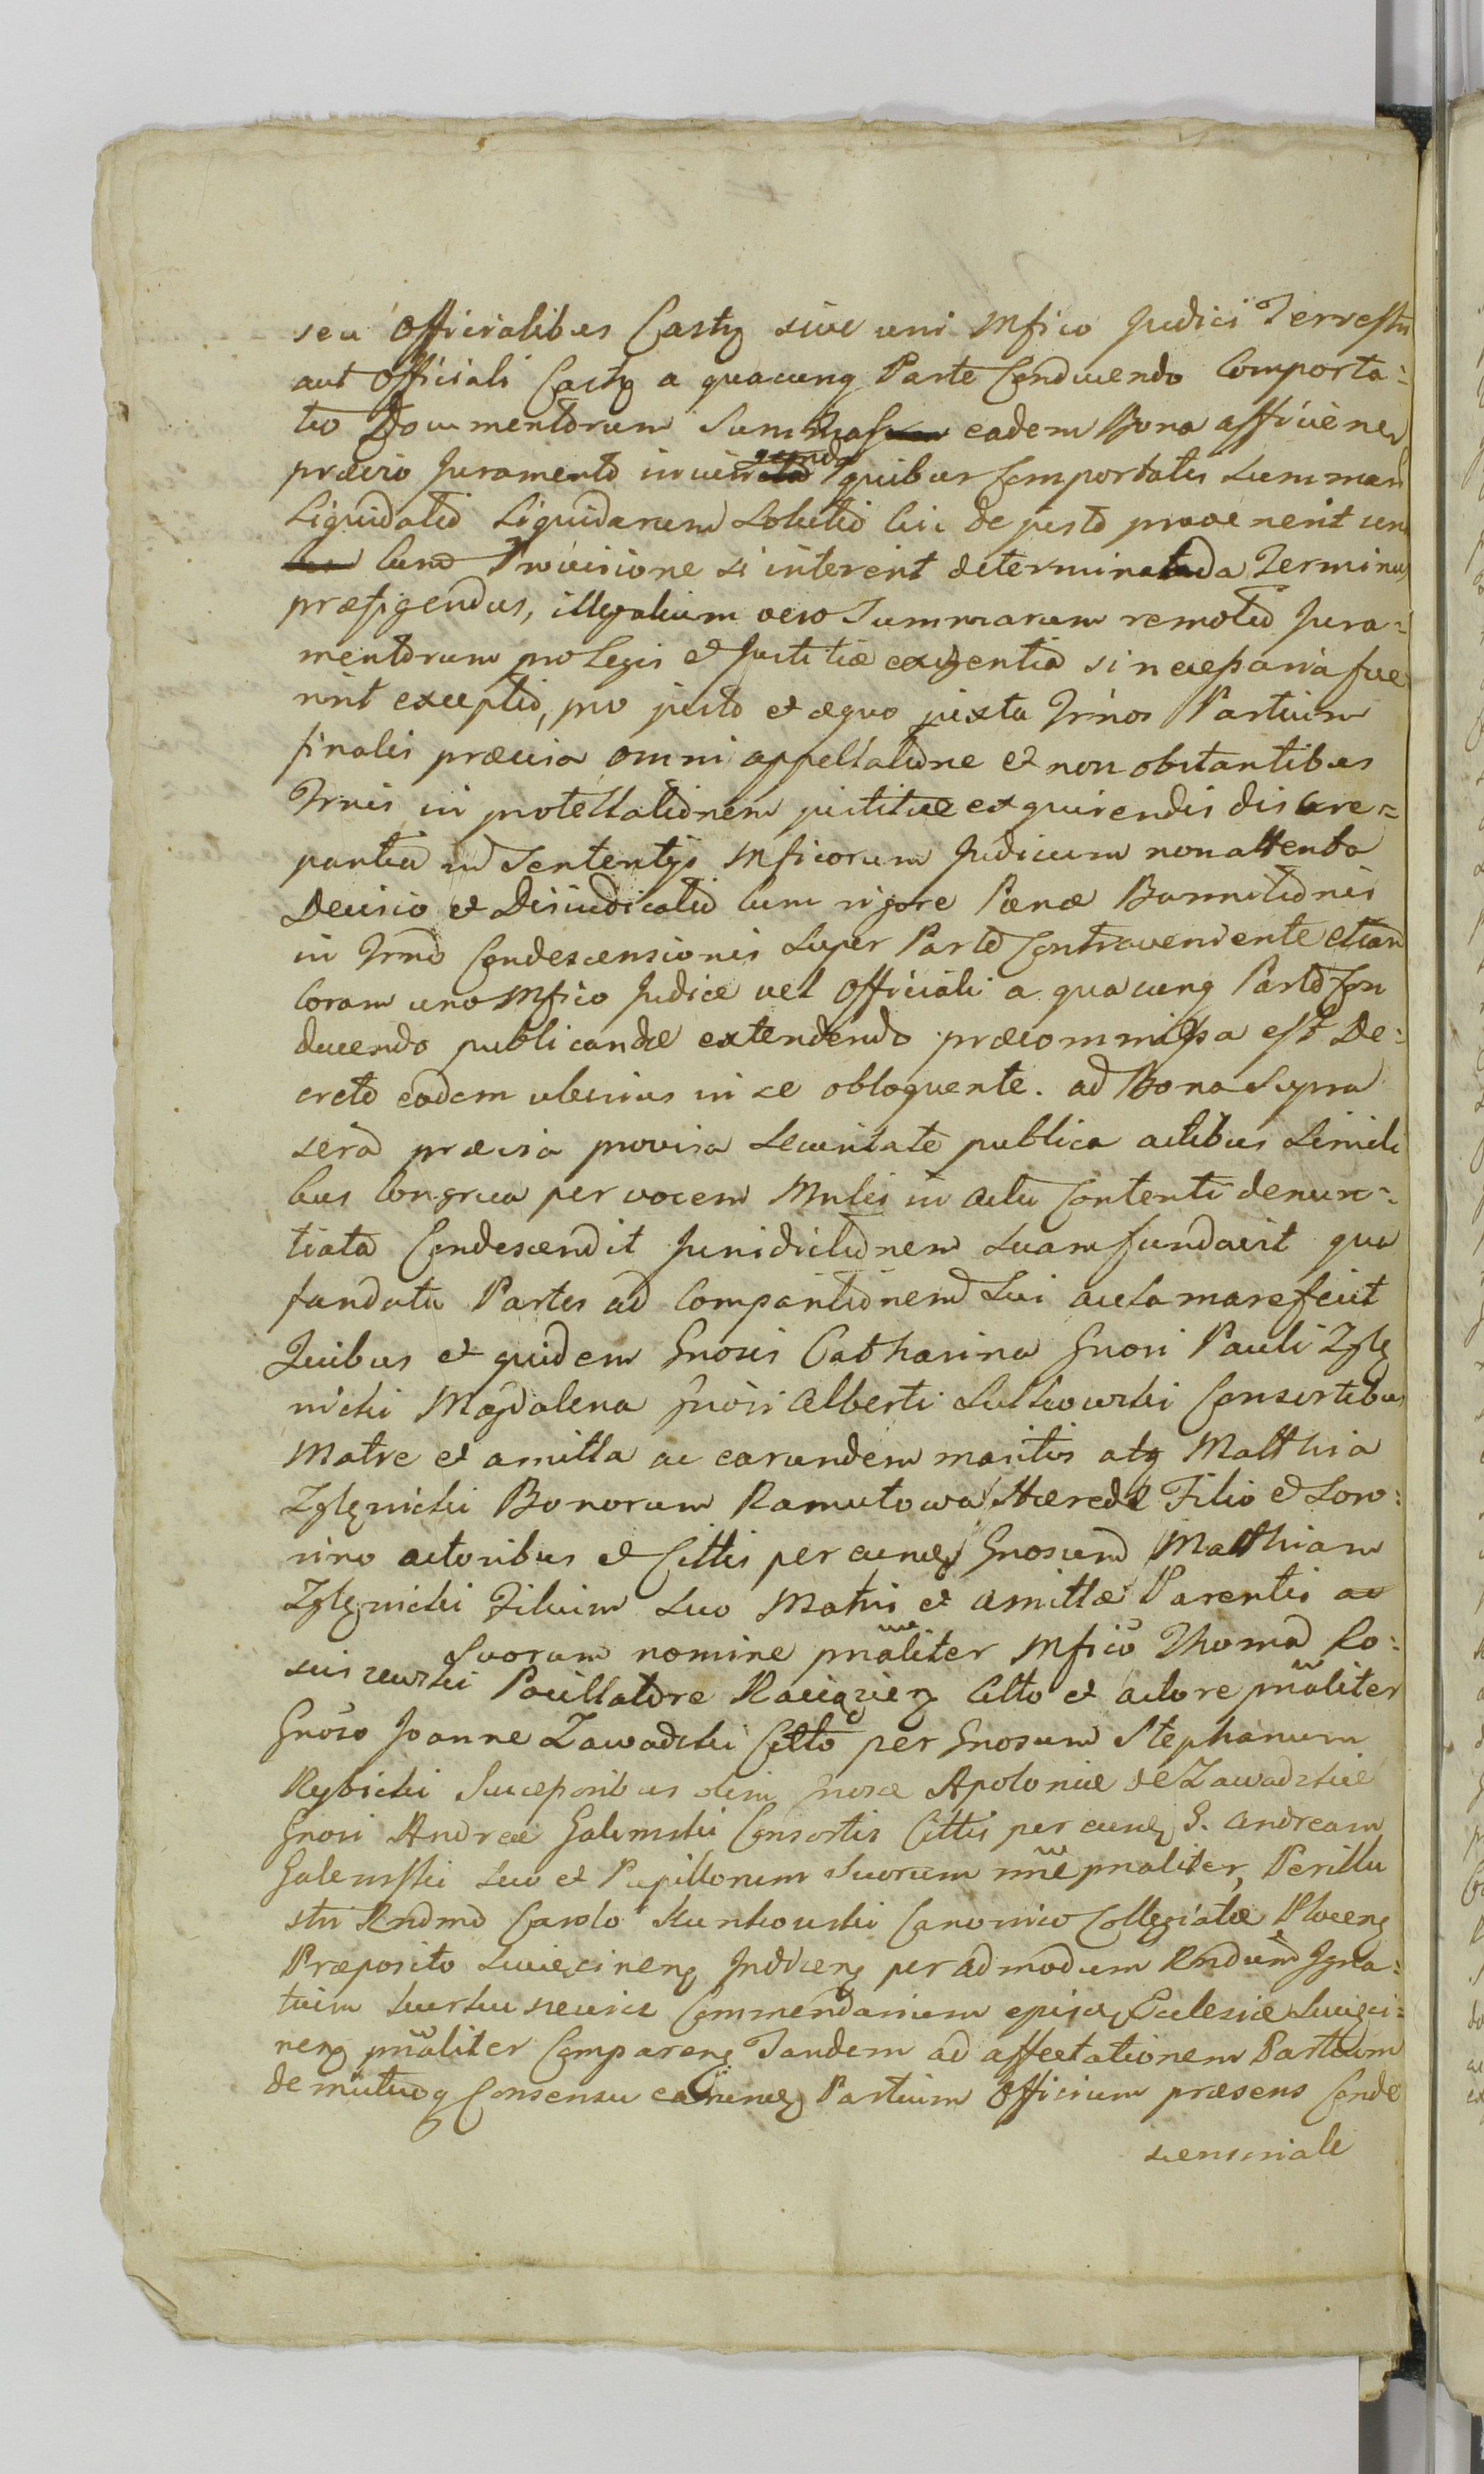 seu Officialibus Castrę sive uni Mfico Judici Terrestri
aut Officiali Castrę a quacunq Parte Conducendo Comporta=
tio Documentorum Summas eadem Bona afficien
prævio Juramento quibus Comportatis Summar
Liquidatio Liquidarum Solutio Cui de justo provenerit cum
Cum Provisione si intererit determinanda Terminus
præfigendus, illegalium vero Summarum remotio Jura=
mentorum pro Legis et Justitiæ exigentia si necessaria fue
rint exceptio, pro justo et æquo juxta Trnos Partium
finalis præcisa omni appellatione et non obstantibus
Trnis in protellationem justitiæ exquirendis discre=
pantia in Sententijs Mficorum Judicum non attenta
Decisio et Dijudicatio Cum rigore Pænæ Bannitionis
in Trno Condescensionis Super Parte Contraveniente etiam
Coram uno Mfico Judice vel Officiali a quacunq Parte Con
ducendo publicandæ extendendo præcommissa est De=
creto eodem ulterius in se obloquente. ad Bona Supra
præcisa provisa Securitate publica actibus Simili
bus Congrua per vocem Mnlis in actu Contenti denun=
tiata Condescendit Jurisdictionem Suam fundavit qua
fundata Partes ad Comparitionem Sui acclamare fecit
Quibus et quidem Gnosis Catharina Gnosi Pauli Zglę
nicki Magdalena Gnosi Alberti Sulkowski Consortibus
Matre et amitta ac earundem maritis atq Matthia
Zglęnicki Bonorum Ramutowa Hærede Filio et Soro=
rino actoribus et Cittis per eund Gnosum Matthiam
Zglęnicki Filium Suo Matris et Amittæ Parentis ac
Suorum nomine pnaliter Mfico Thoma Ko=
Pocillatore Raciązien Citto et actore pnaliter
Gnoso Joanne Zawadzki Citto per Gnosum Stephanum
Rybicki Successoribus olim Gnosæ Apoloniæ de Zawadzkie
Gnosi Andreæ Galemski Consortis Cittis per eund G. Andream
Galemski Suo et Pupillorum Suorum nne pnaliter, Perillu
stri Rndmo Carolo Kunkowski Canonico Collegiatæ Plocens
Præposito per admodum Rndum Igna=
tium Commendarium Ecclesiæ
pnaliter Comparen Tandem ad affectationem Partium
de mutuoq Consensu earund Partium Officium præsens Conde
scensoriale